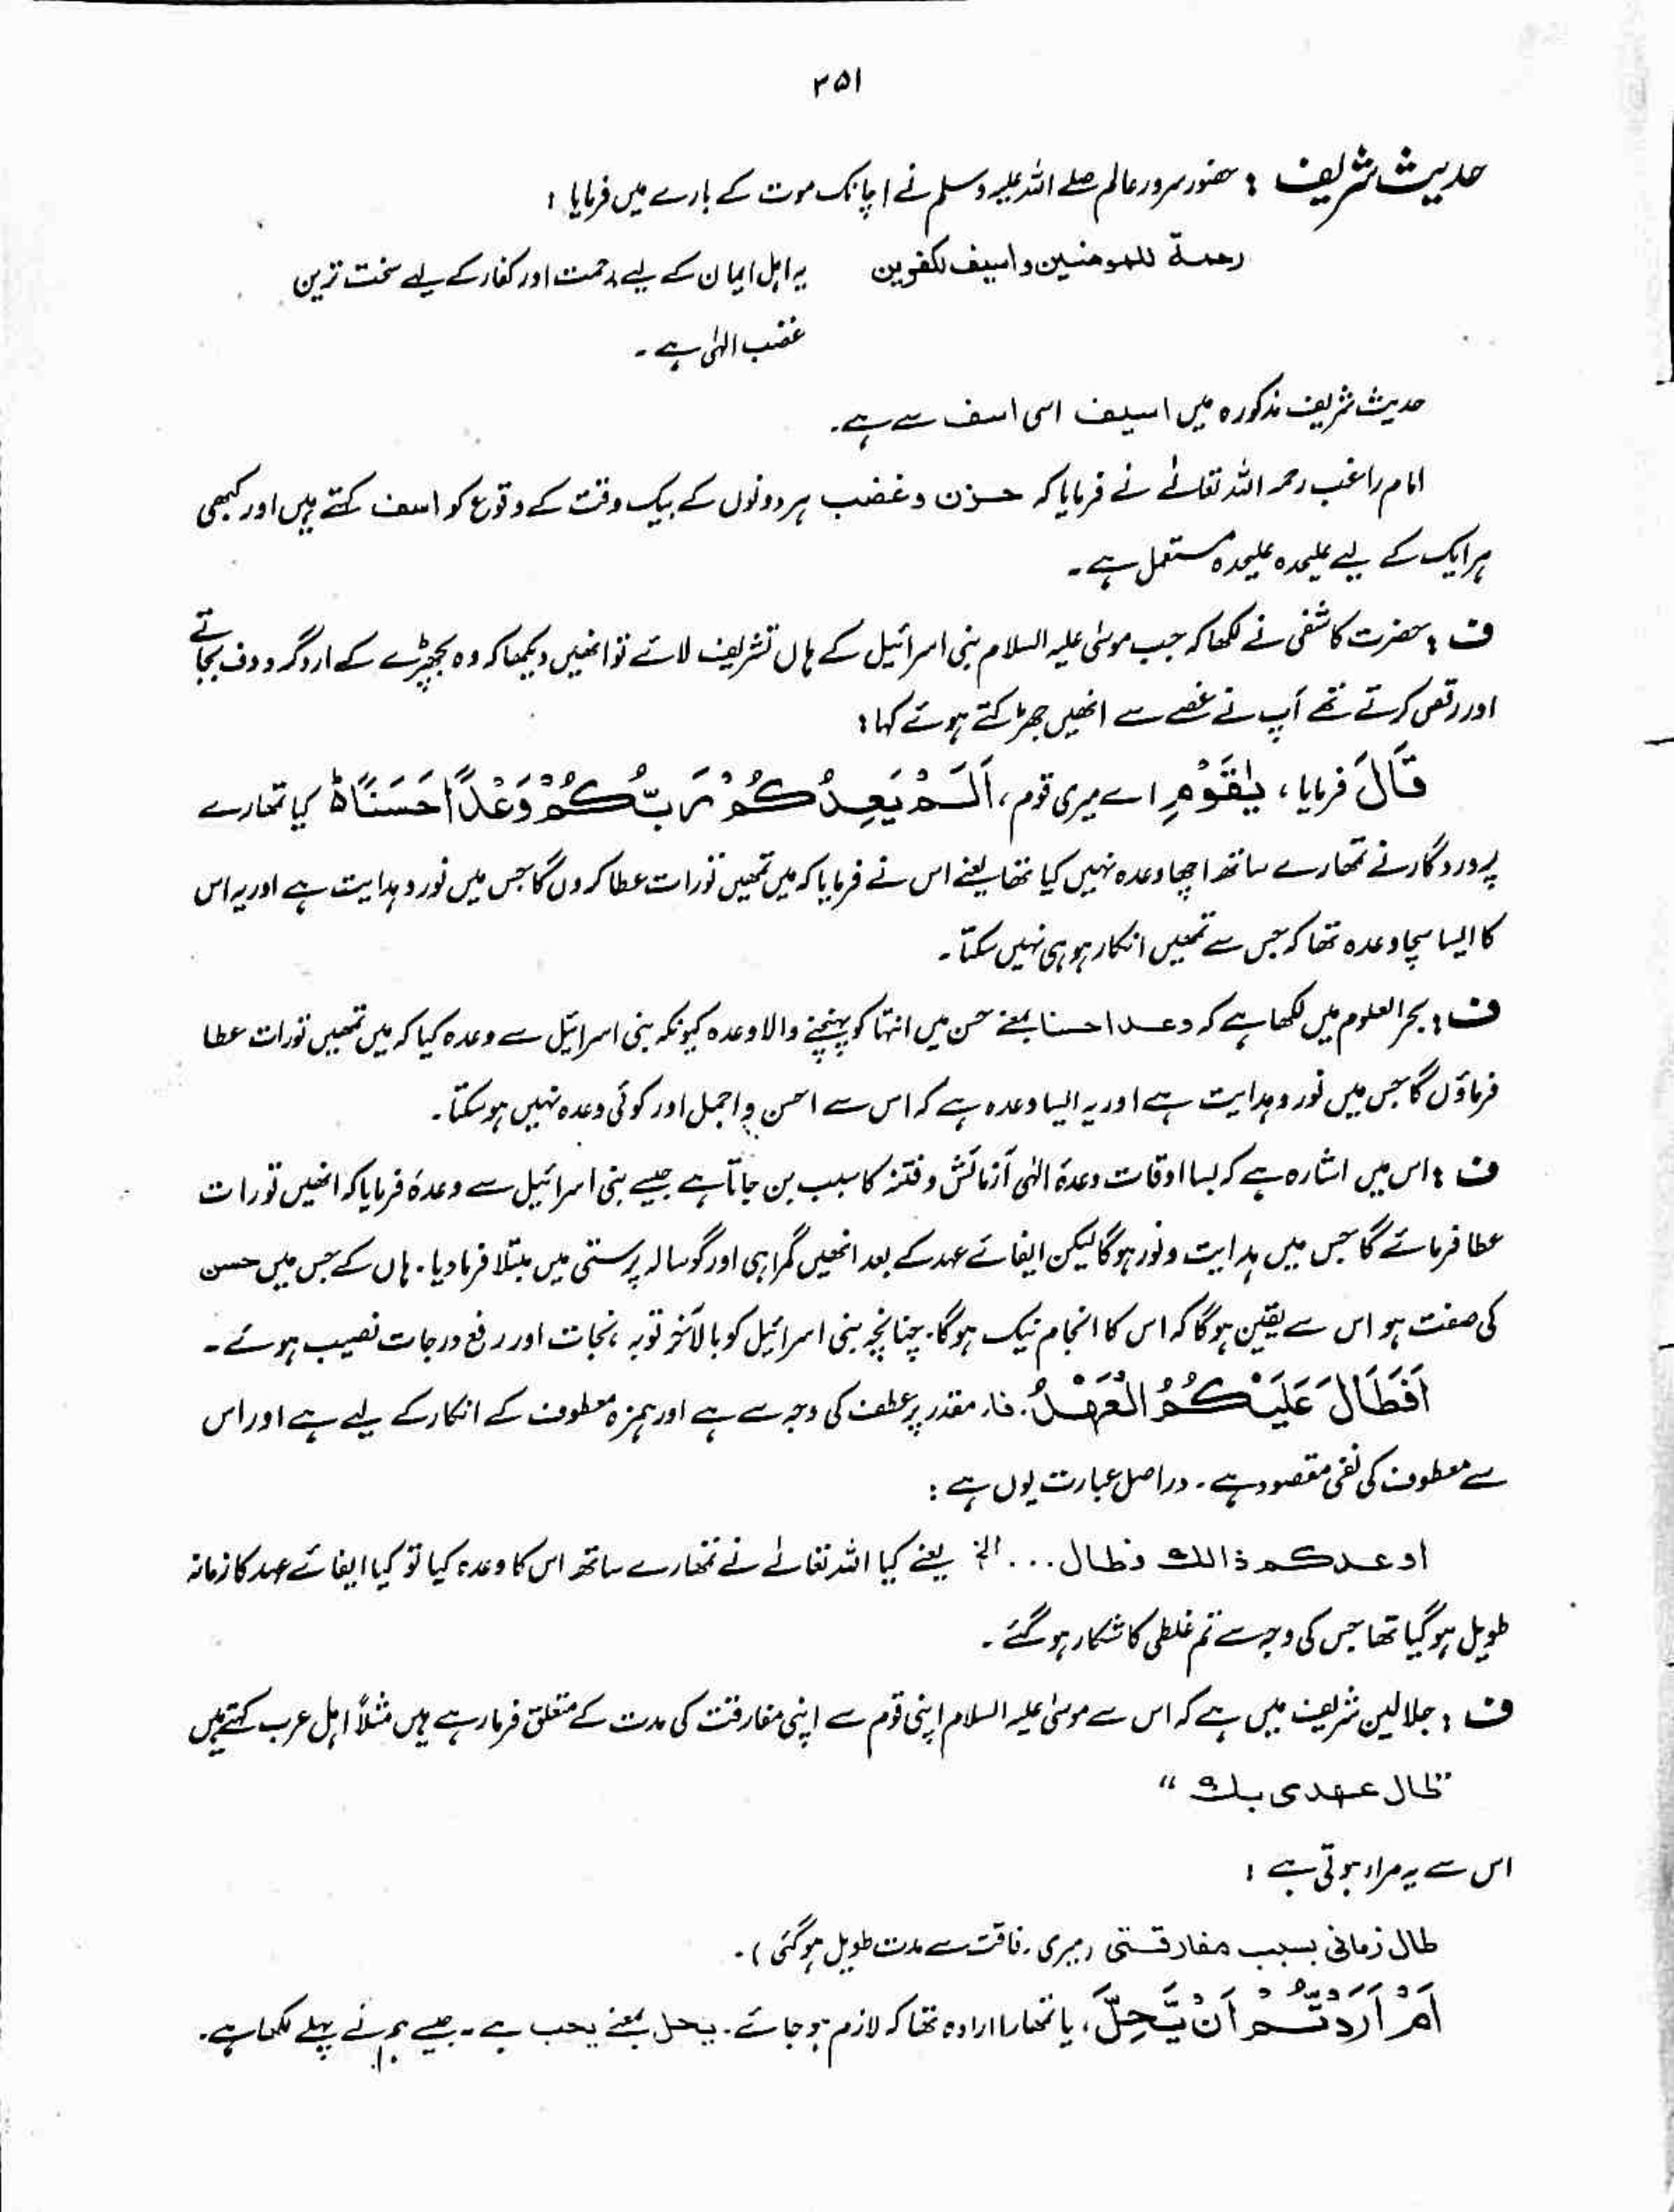 ۲۵۱
حدیث شریف : حضور سرور عالم صلے اللہ علیہ وسلم نے اچانک موت کے بارے میں فرمایا :
رحمة للمومنین و اسیف لکفرین یہ اہل ایمان کے لیے رحمت اور کفار کے لیے سخت ترین
غضب الہٰی ہے ۔
حدیث شریف مذکورہ میں اسیف اسی اسف سے ہے۔
امام راغب رحمہ اللہ تعالےٰ نے فرمایا کہ حزن و غضب ہر دونوں کے بیک وقت کے وقوع کو اسف کہتے ہیں اور کبھی
ہر ایک کے لیے علیحدہ علیحدہ مستعمل ہے ۔
ف : حضرت کاشفی نے لکھا کہ جب موسٰی علیہ السلام بنی اسرائیل کے ہاں تشریف لائے تو انھیں دیکھا کہ وہ بچھڑے کے ارد گرد دف بجاتے
اور رقص کرتے تھے آپ نے غصے سے انھیں جھڑکتے ہوئے کہا :
قَالَ فرمایا ، یٰقَوْمِ اے میری قوم ، اَلَمْ یَعِدْکُمْ رَبُّکُمْ وَعْدًا حَسَنًا ط کیا تمھارے
پروردگار نے تمھارے ساتھ اچھا وعدہ نہیں کیا تھا یعنے اس نے فرمایا کہ میں تمھیں تورات عطا کروں گا جس میں نور و ہدایت ہے اور یہ اس
کا ایسا سچا وعدہ تھا کہ جس سے تمھیں انکار ہو ہی نہیں سکتا ۔
ف : بحر العلوم میں لکھا ہے کہ وعدا حسنا بمعنے حسن میں انتہا کو پہنچنے والا وعدہ کیونکہ بنی اسرائیل سے وعدہ کیا کہ میں تمھیں تورات عطا
فرماؤں گا جس میں نور و ہدایت ہے اور یہ ایسا وعدہ ہے کہ اس سے احسن و اجمل اور کوئی وعدہ نہیں ہو سکتا ۔
ف : اس میں اشارہ ہے کہ بسا اوقات وعدۂ الہٰی آزمائش و فتنہ کا سبب بن جاتا ہے جیسے بنی اسرائیل سے وعدہ فرمایا کہ انھیں تورات
عطا فرمائے گا جس میں ہدایت و نور ہوگا لیکن ایفائے عہد کے بعد انھیں گمراہی اور گوسالہ پرستی میں مبتلا فرما دیا ۔ ہاں کے جس میں حسن
کی صفت ہو اس سے یقین ہوگا کہ اس کا انجام نیک ہوگا ۔ چنانچہ بنی اسرائیل کو بالآخر توبہ ، نجات اور رفع درجات نصیب ہوئے ۔
اَفَطَالَ عَلَیْکُمُ الْعَهْدُ ۔ فاء مقدر پر عطف کی وجہ سے ہے اور ہمزہ معطوف کے انکار کے لیے ہے اور اس
سے معطوف کی نفی مقصود ہے ۔ دراصل عبارت یوں ہے :
اوعدکم ذالك فطال ... الخ یعنے کیا اللہ تعالےٰ نے تمھارے ساتھ اس کا وعدہ کیا تو کیا ایفائے عہد کا زمانہ
طویل ہو گیا تھا جس کی وجہ سے تم غلطی کا شکار ہو گئے ۔
ف : جلالین شریف میں ہے کہ اس سے موسٰی علیہ السلام اپنی قوم سے اپنی مفارقت کی مدت کے متعلق فرما رہے ہیں مثلاً اہل عرب کہتے ہیں
"طال عهدی بك "
اس سے یہ مراد ہوتی ہے :
طال زمانی بسبب مفارقتی (میری رفاقت سے مدت طویل ہو گئی ) ۔
اَمْ اَرَدْتُّمْ اَنْ یَّحِلَّ ، یا تمھارا ارادہ تھا کہ لازم ہو جائے ۔ یحل بمعنے یجب ہے ۔ جیسے ہم نے پہلے لکھا ہے ۔